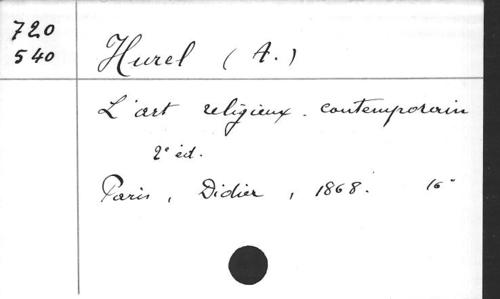 720
540
Hurel (A.)
L'art religieux contemporain
2e éd.
Paris, Didier, 1868. 16°